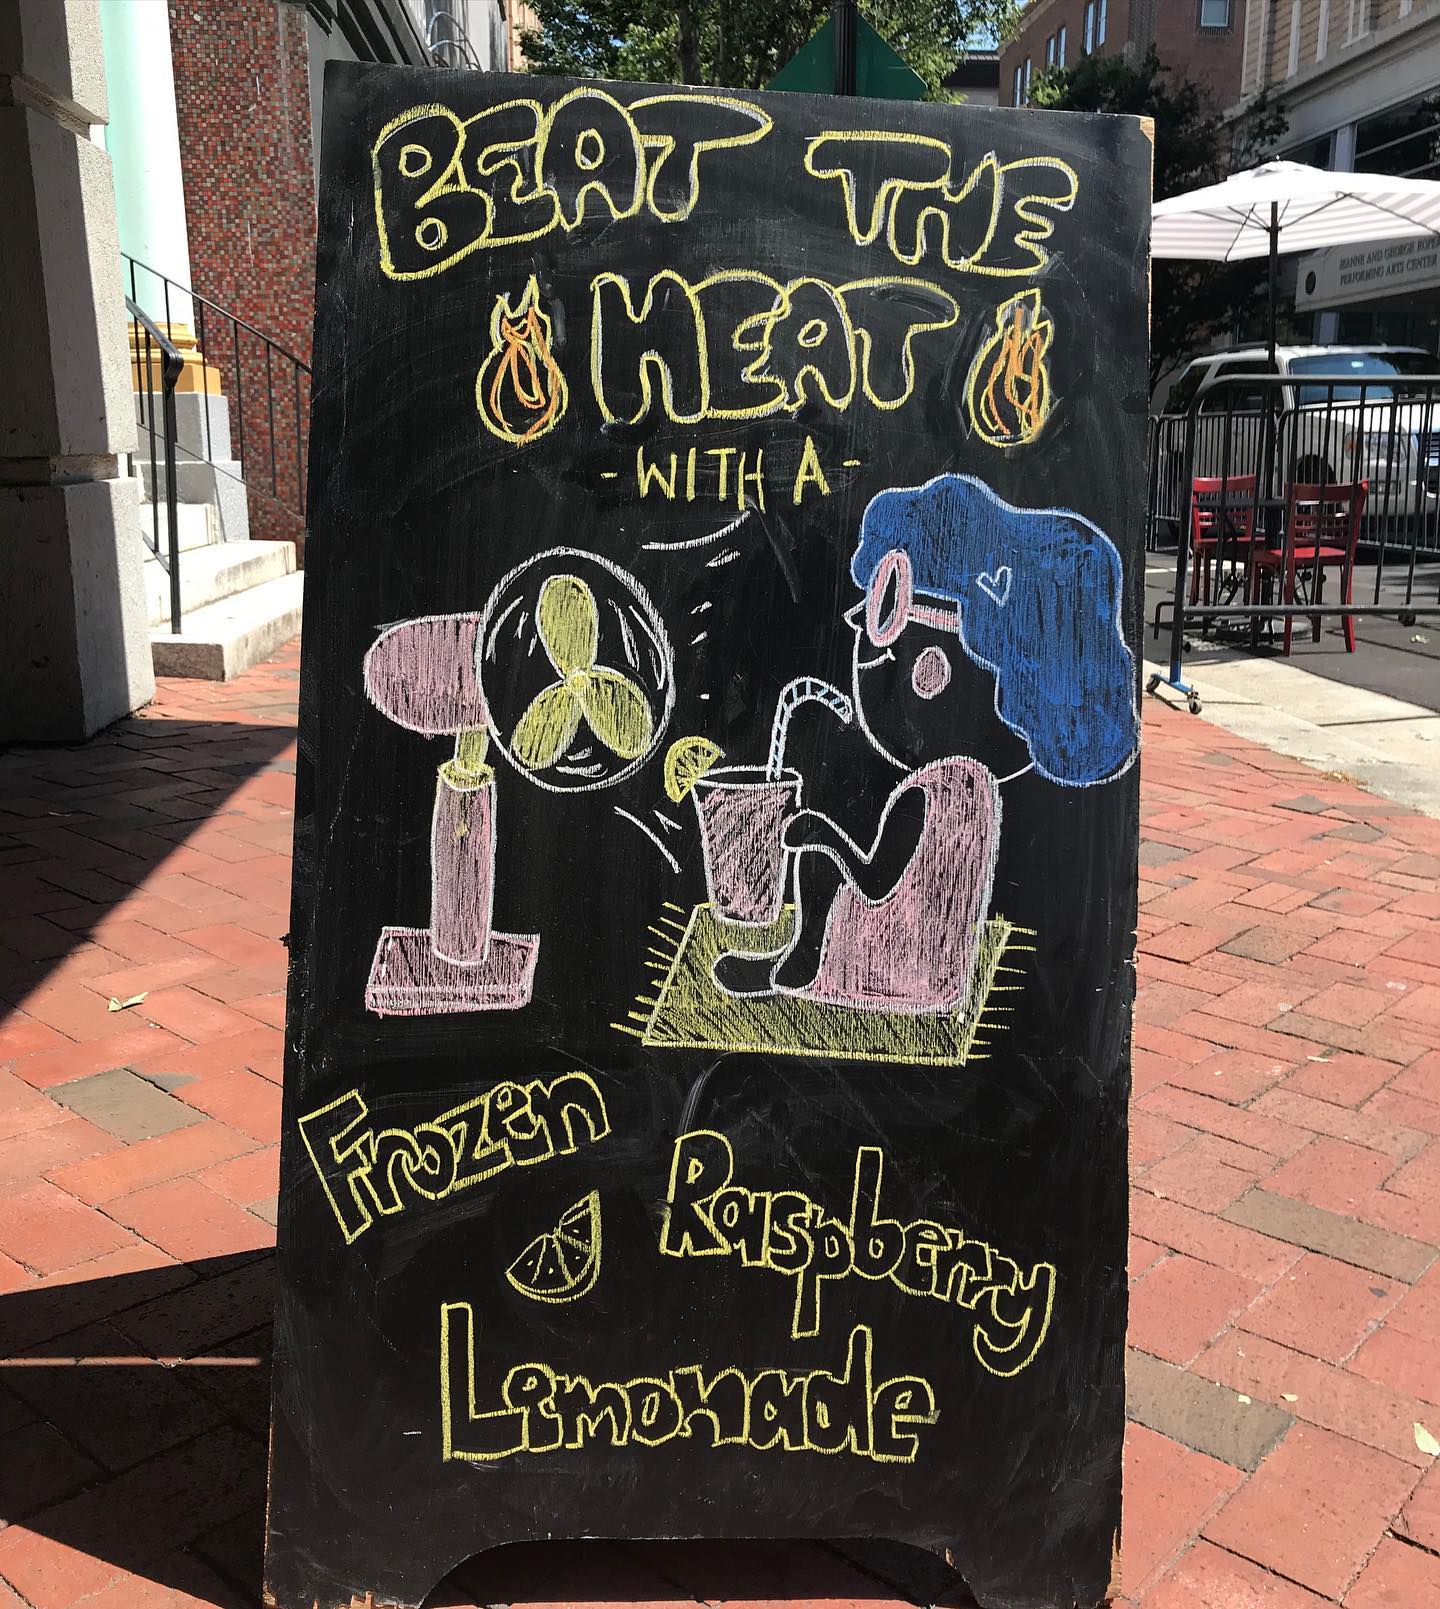 BEAT THE
HEAT
-WITH A-
Frozen
Raspberry
Lemonade
JEANNE AND GEORGE ROPER
PERFORMING ARTS CENTER